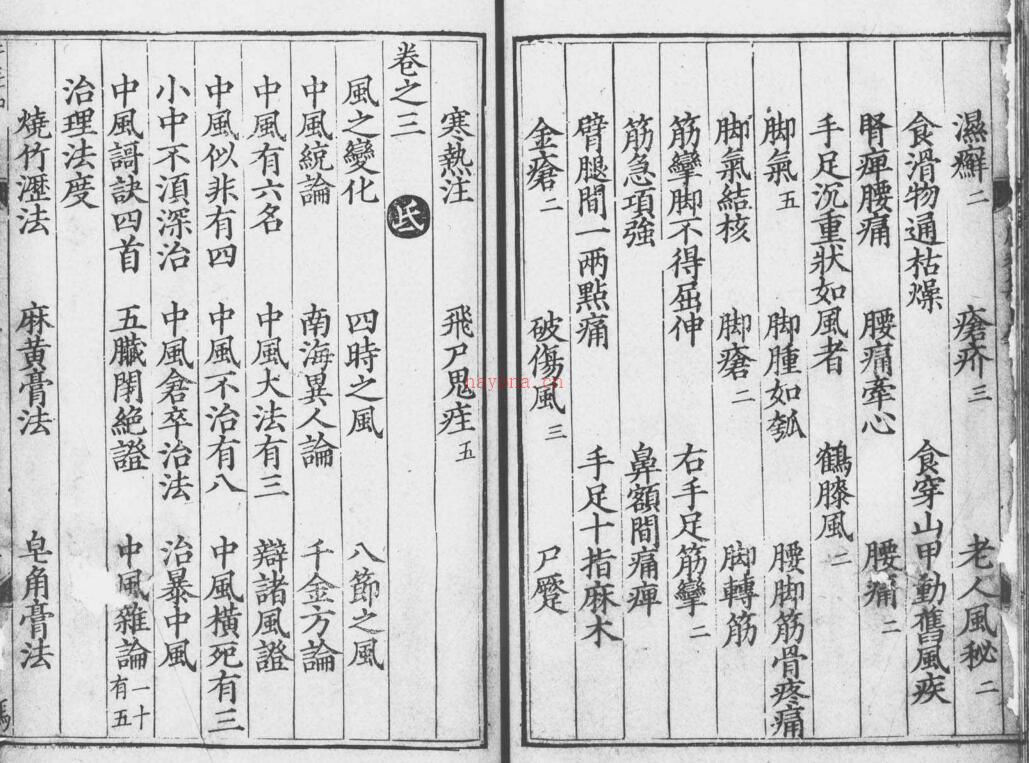 濕癬二　瘡疥三　老人風秘二
食滑物通枯燥　食穿山甲動舊風疾
腎痺腰痛　腰痛牽心　腰痛二
手足沉重狀如風者　鶴膝風二
脚氣五　脚腫如瓠　腰脚筋骨疼痛
脚氣結核　脚瘡二　脚轉筋
筋攣脚不得屈伸　右手足筋攣二
筋急項強　鼻額間痛痺
臂腿間一兩點痛　手足十指麻木
金瘡二　破傷風三　尸蹷
寒熱注　飛尸鬼疰五
卷之三　氏
風之變化　四時之風　八節之風
中風統論　南海異人論　千金方論
中風有六名　中風大法有三　辯諸風證
中風似非有四　中風不治有八　中風橫死有三
小中不湏深治　中風倉卒治法　治暴中風
中風謌訣四首　五臟閉絶證　中風雜論一十有五
治理法度
燒竹瀝法　麻黃膏法　皂角膏法
hayona.cn